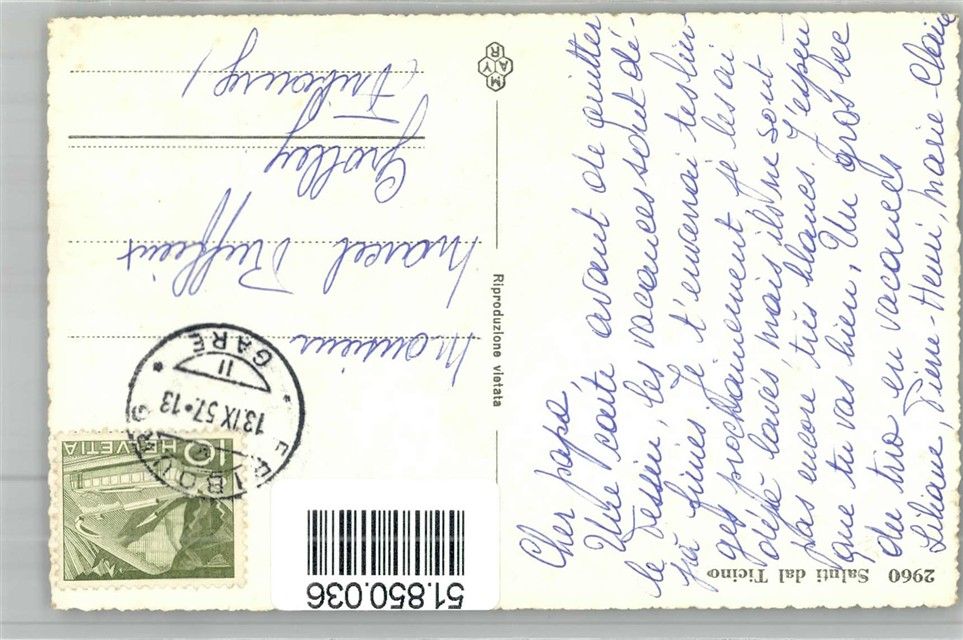 2960 Saluti dal Ticino
Cher papa
Une carte avant de quitter
le Tessin, les vacances sont dé-
jà finies. Je t'enverrai tes lin-
ges prochainement je les ai
déjà lavés mais ils ne sont
pas encore très blancs. J'espère
que tu vas bien. Un gros bec
du trio en vacances
Liliane, Pierre-Henri, Marie-Claire
MAYR
Riproduzione vietata
Monsieur
Marcel
Grolley
(Fribourg)
FRIBOURG
13.IX 57.-13
II
GARE
10 HELVETIA
51.850.036